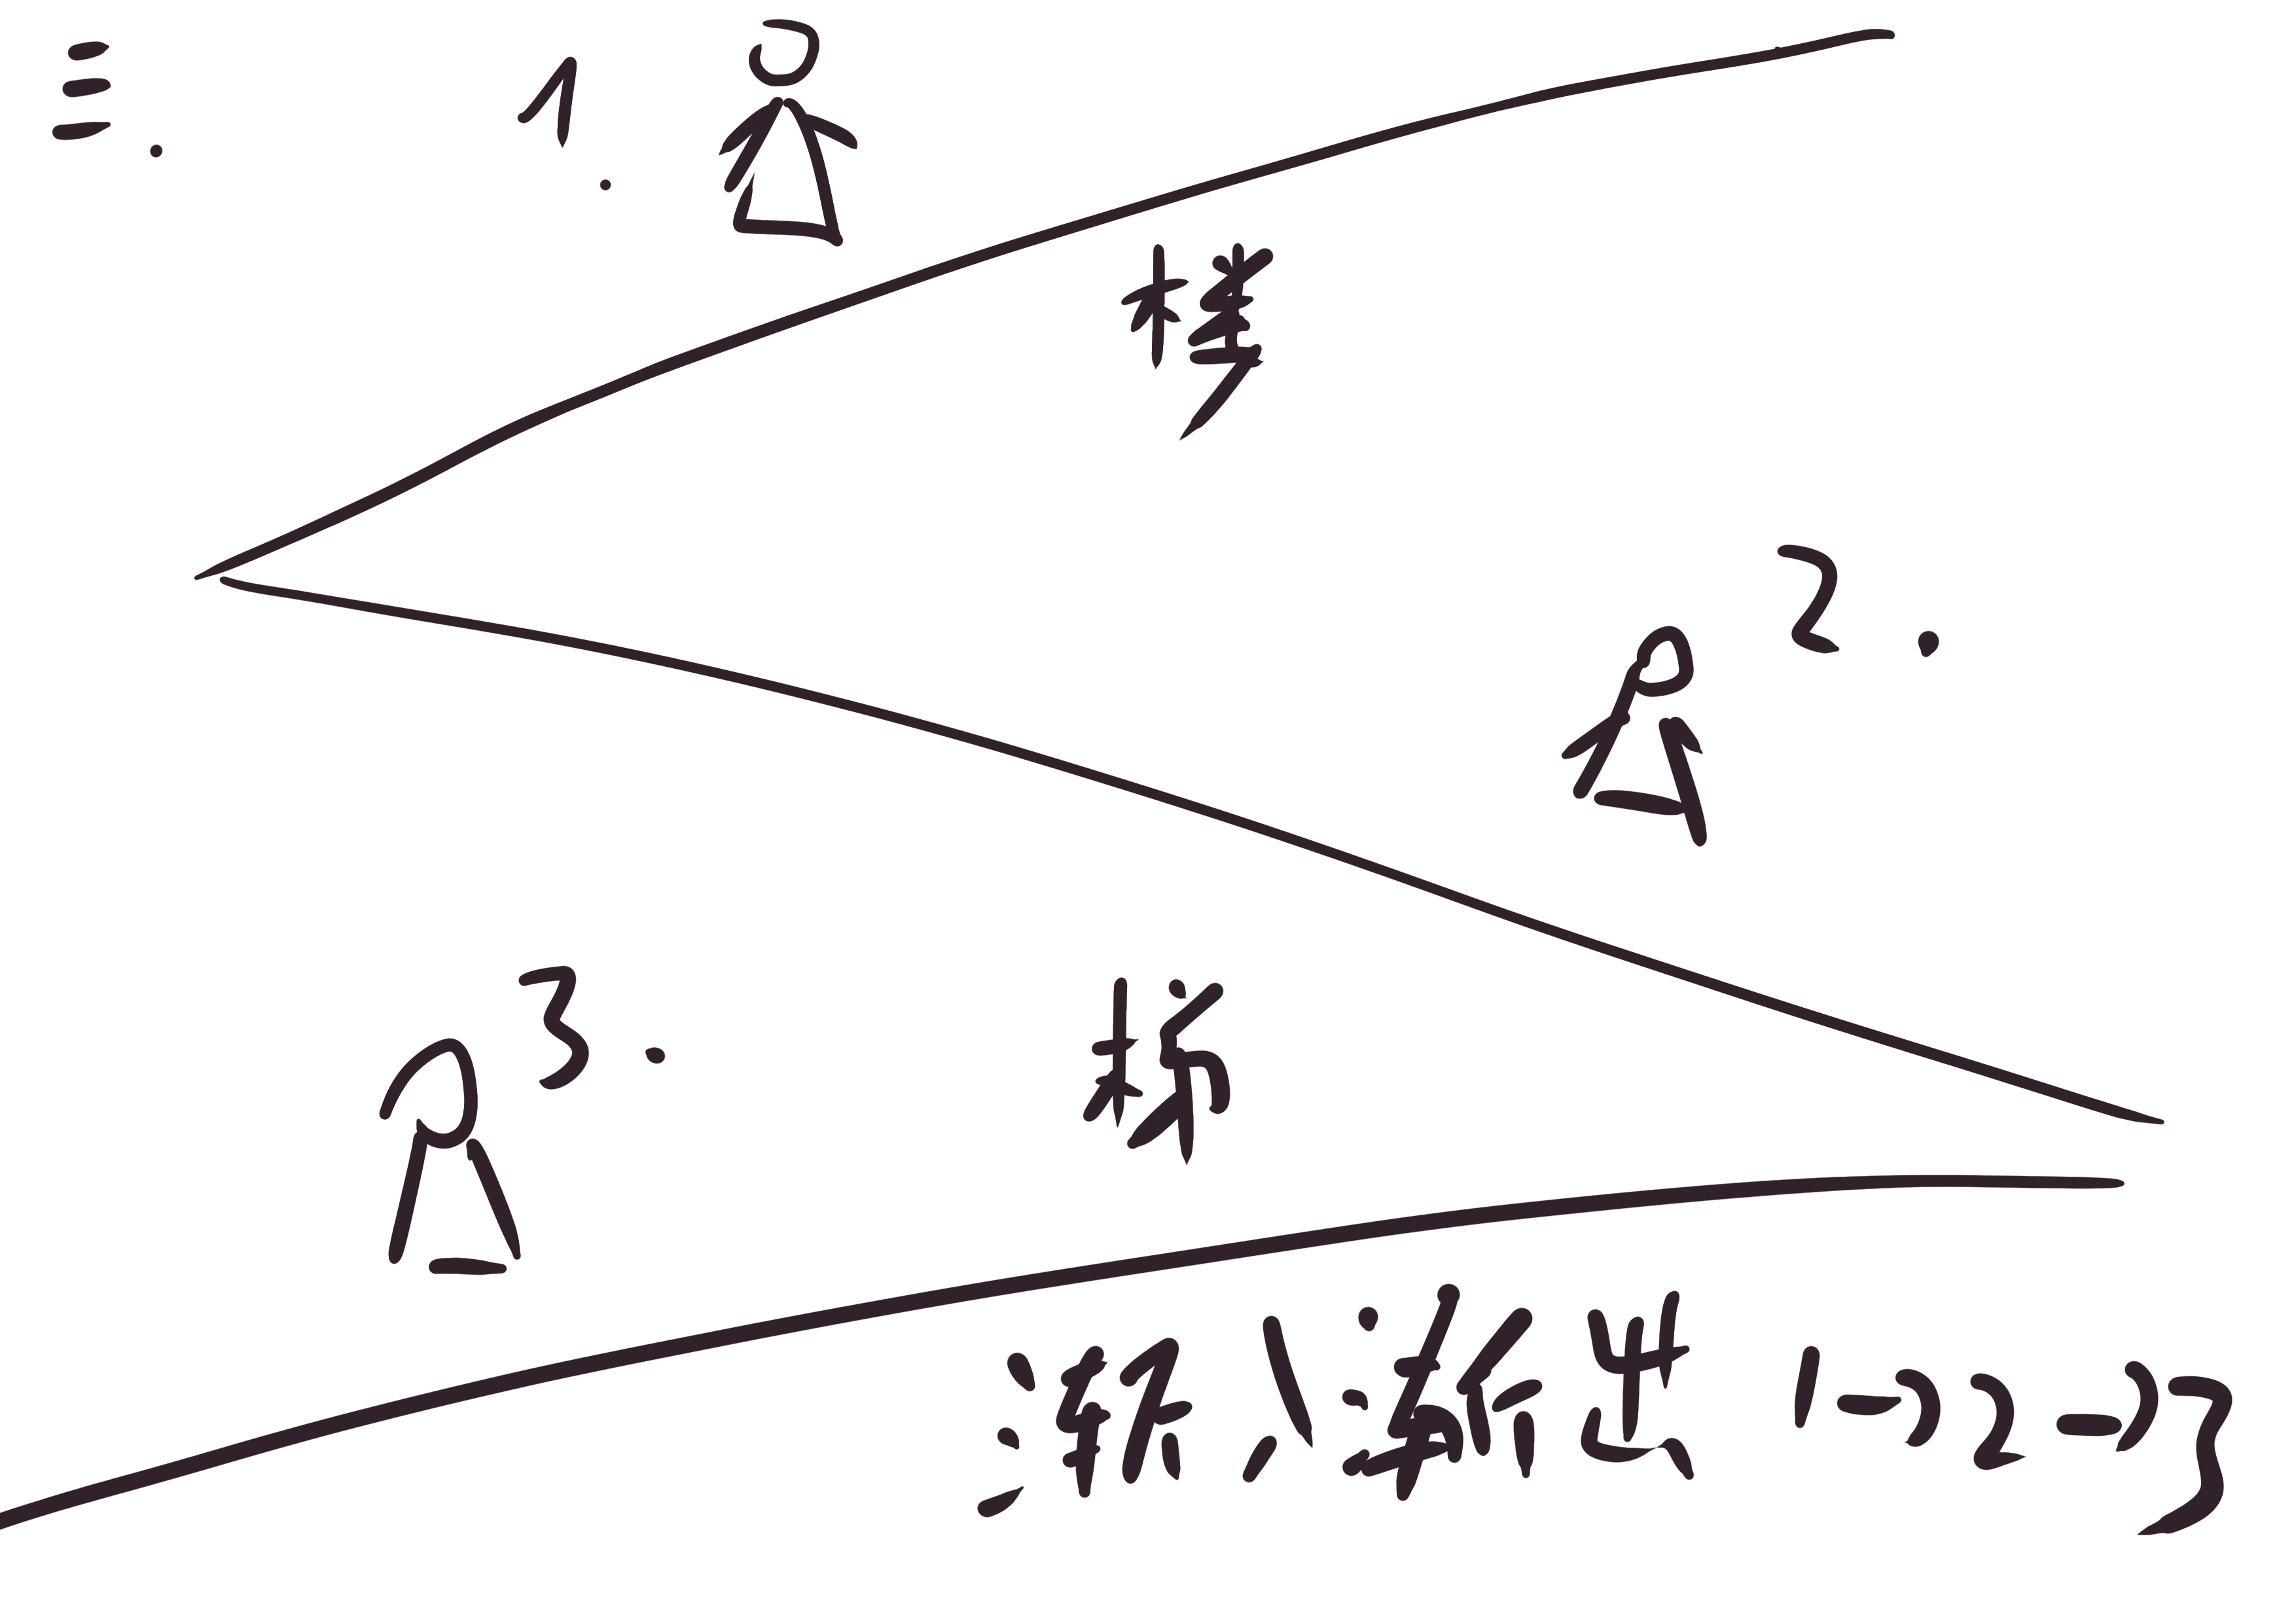 三.
1.
楼
2.
3.
桥
渐入渐出 1→2→3